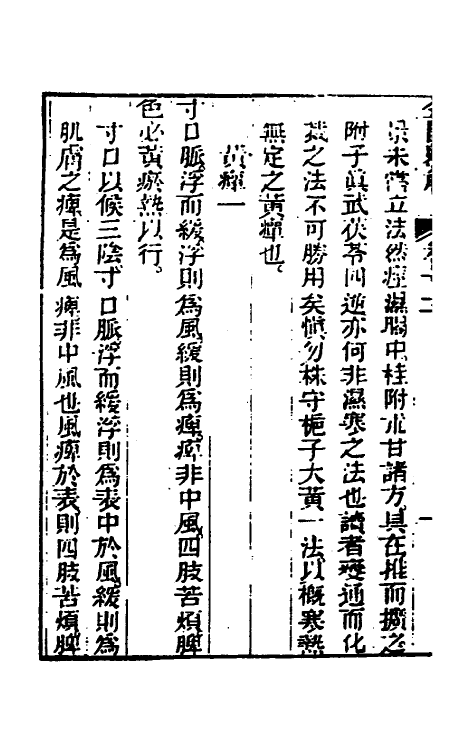 景未嘗立法然痙濕暍中桂附朮甘諸方具在推而擴之
附子眞武茯苓四逆亦何非濕寒之法也讀者變通而化
裁之法不可勝用矣愼勿株守梔子大黃一法以概寒熱
無定之黃癉也。
黃癉一
寸口脈浮而緩浮則爲風緩則爲痺痺非中風四肢苦煩脾
色必黃瘀熱以行。
寸口以候三陰寸口脈浮而緩浮則爲表中於風緩則爲
肌膚之痺是爲風痺非中風也風痺於表則四肢苦煩脾